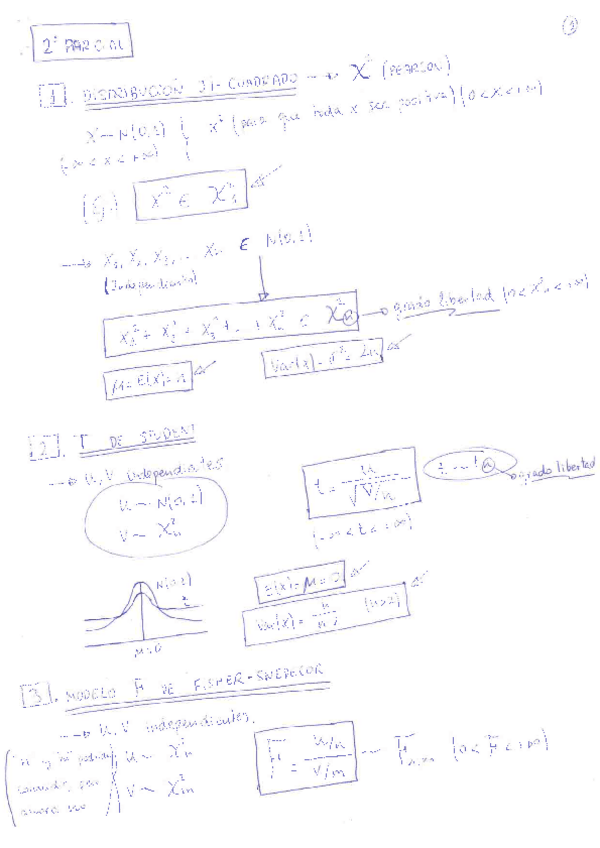 1
2º PARCIAL
1. DISTRIBUCIÓN JI-CUADRADO → X² (PEARSON)
X ~ N(0,1) x² (para que toda x sea positiva) (0 < x < +∞)
(-∞ < x < +∞)
X² ∈ X²₁
→ X₁, X₂, X₃, ... Xₙ ∈ N(0,1)
(Independientes)
X₁² + X₂² + X₃² + ... + Xₙ² ∈ X²ₙ → grado libertad (0 < X²ₙ < +∞)
M = E(x) = n Var(x) = σ² = 2n
2. T DE STUDENT
→ U, V independientes
U ~ N(0,1)
V ~ X²ₙ
t = u / √V/n t ~ tₙ → grado libertad
(-∞ < t < +∞)
N(0,1)
t
M=0
E(x) = M = 0
Var(x) = n / n-2 (n>2)
3. MODELO F DE FISHER-SNEDECOR
→ U, V independientes.
U ~ X²ₙ
V ~ X²ₘ
F = u/n / V/m ~ Fₙ,ₘ (0 < F < +∞)